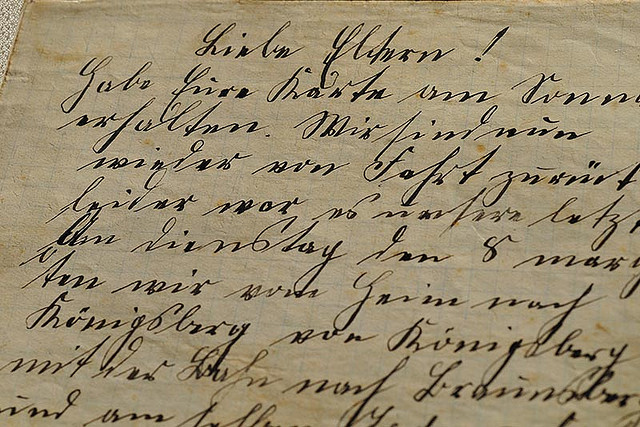 Liebe Eltern!
Habe Eure Karte am Sonn
erhalten. Wir sind nun
wieder von Fahrt zurück
leider war es unsere letz
Am Dienstag den 8 mar
ten wir vom Heim nach
Königsberg von Königsberg
mit der Bahn nach Braunsber
und am